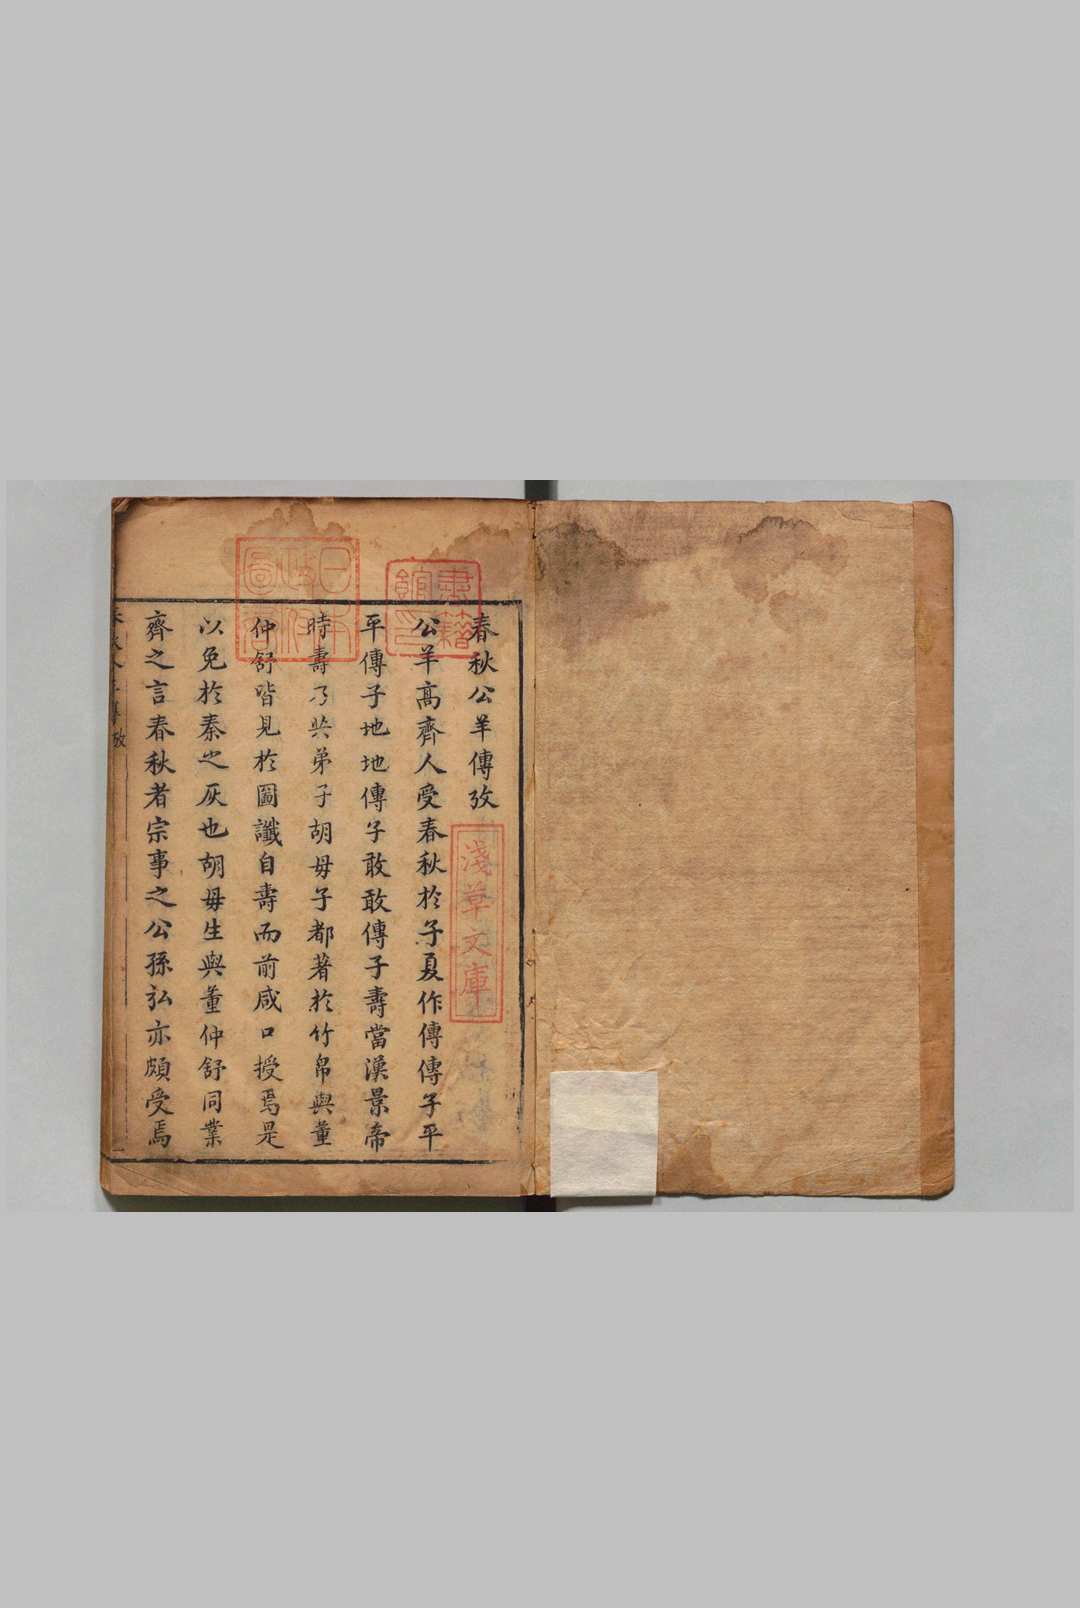 春秋公羊傳攷
公羊高齊人受春秋於子夏作傳傳子平
平傳子地地傳子敢敢傳子壽當漢景帝
時壽乃共弟子胡毋子都著於竹帛與董
仲舒皆見於圖讖自壽而前咸口授焉是
以免於秦之灰也胡毋生與董仲舒同業
齊之言春秋者宗事之公孫弘亦頗受焉
春秋公羊傳攷
一
書籍館印
日本政府圖書
淺草文庫